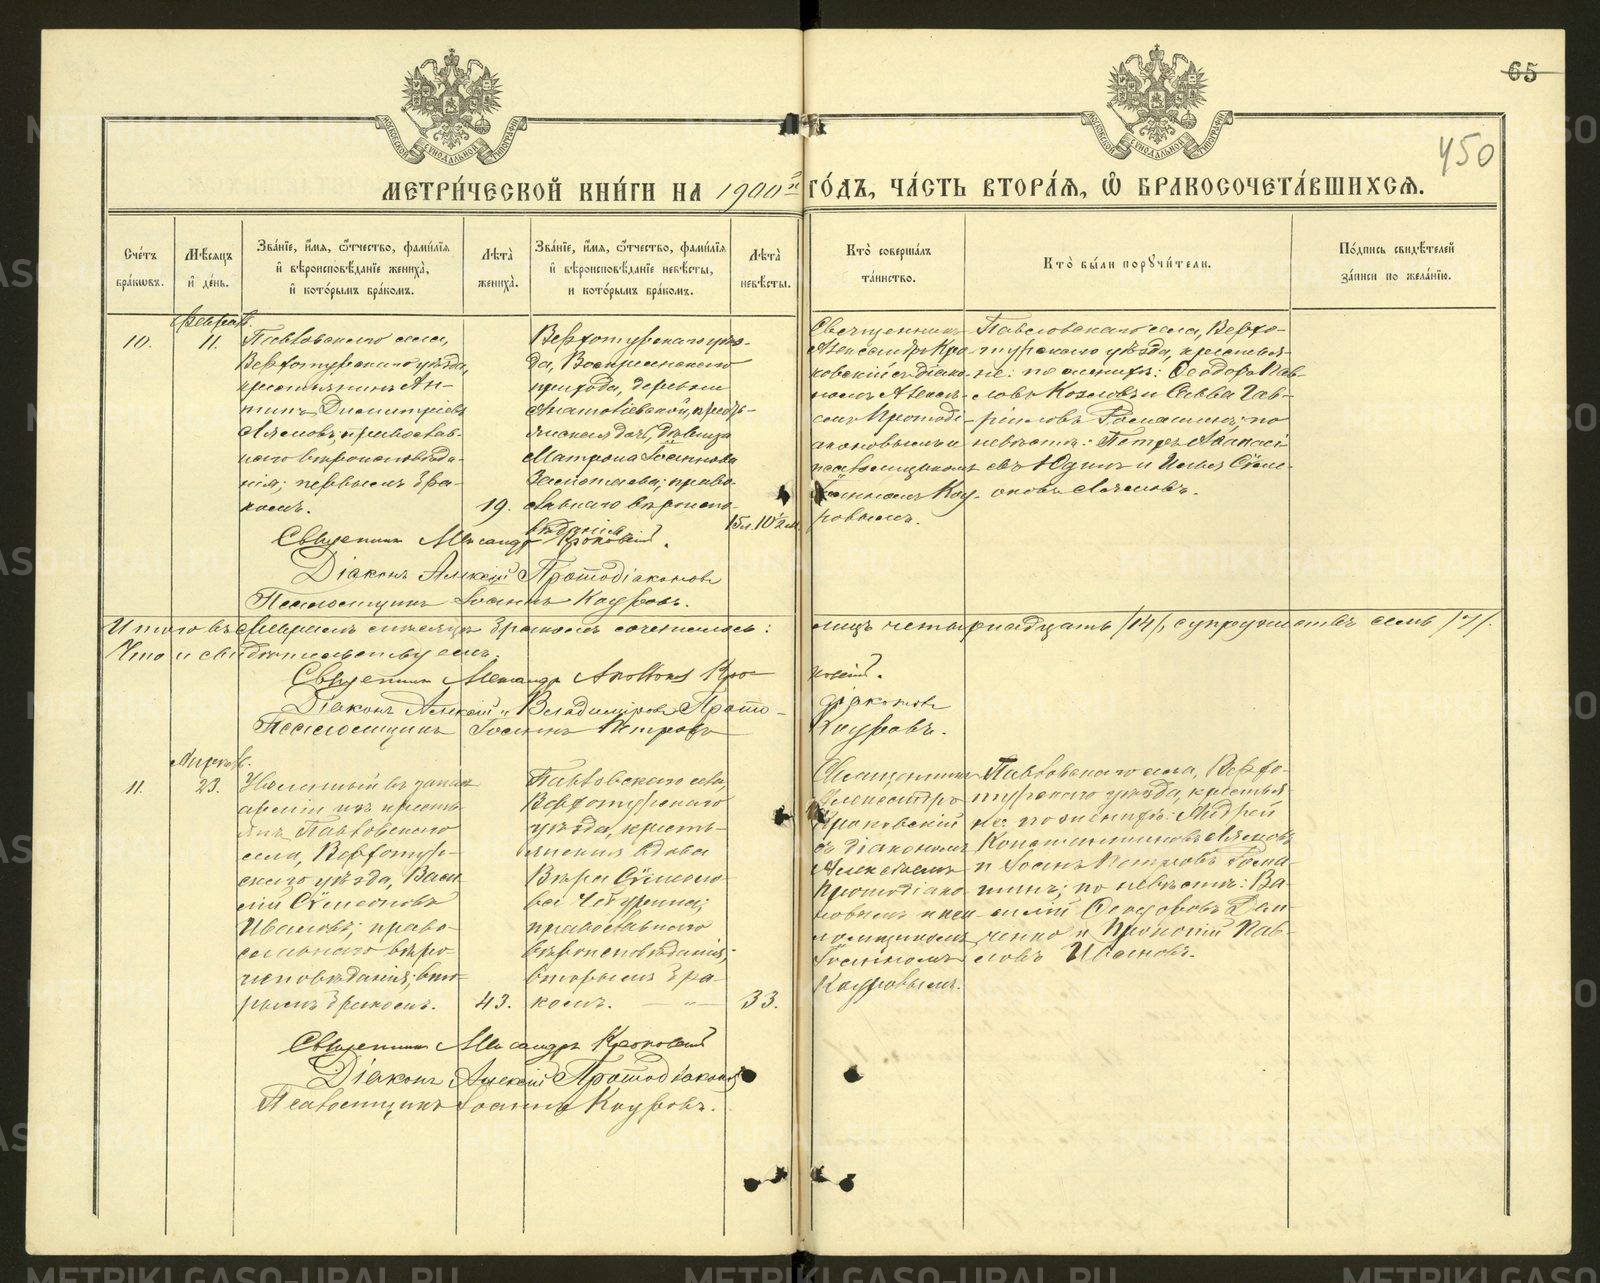 65
450
МЕТРИ́ЧЕСКОЙ КНИ́ГИ НА 1900й ГО́ДЪ, ЧА́СТЬ ВТОРА́Я, Ѽ БРАКОСОЧЕТА́ВШИХСЯ.
Сче́тъ бра́ковъ.
Мѣ́сяцъ и де́нь.
Зва́нїе, и́мя, ѻ́тчество, фами́лїя и҆ вѣроисповѣ́данїе жениха̀, и҆ кото́рымъ бра́комъ.
Лѣта̀ жениха̀.
Зва́нїе, и́мя, ѻ́тчество, фами́лїя и҆ вѣроисповѣ́данїе невѣ́сты, и кото́рымъ бра́комъ.
Лѣта̀ невѣ́сты.
Кто̀ соверша́лъ та́инство.
Кто̀ бы́ли порꙋчи́тели.
По́дпись свидѣ́телей за́писи по жела́нїю.
Февраль.
10.
11.
Павловскаго села,
Верхотурскаго уѣзда,
крестьянинъ Ан-
типъ Димитріевъ
Алямовъ, православ-
наго вѣроисповѣда-
нія; первымъ бра-
комъ.
19.
Верхотурскаго уѣз-
да, Воскресенскаго
прихода, деревни
крестья-
янская дочь, дѣвица
Матрона Іоаннова
право-
славнаго вѣроиспо-
вѣданія
15 л. 10 ½ м.
Священникъ
Александръ Кро-
ковскій съ діако-
номъ Алексѣ-
емъ Протоді-
аконовымъ и
псаломщикомъ
Іоанномъ Кау-
ровымъ.
Павловскаго села, Верхо-
турскаго уѣзда, крестья-
не: по женихѣ: Ѳеодоръ Пав-
ловъ Козловъ и Савва Гав-
ріиловъ Ромашинъ; по
невѣстѣ: Петръ Аѳанасі-
евъ Юдинъ и Илья Сѵме-
оновъ Алямовъ.
Священникъ Александръ Кроковскій.
Діаконъ Алексій Протодіаконовъ
Псаломщикъ Іоаннъ Кауровъ.
Итого въ Февралѣ мѣсяцѣ бракомъ сочеталось: лицъ четырнадцать /14/, супружествъ семь /7/.
Что и свидѣтельствуемъ:
Священникъ Александръ Кроковскій.
Діаконъ Алексій Владиміровъ Протодіаконовъ
Псаломщикъ Іоаннъ Петровъ Кауровъ.
11.
23.
Уволенный въ запасъ
арміи изъ крестья-
янъ Павловскаго
села, Верхотур-
скаго уѣзда, Васи-
лій Сѵмеоновъ
Ивановъ; право-
славнаго вѣро-
исповѣданія; вто-
рымъ бракомъ.
43.
Павловскаго села,
Верхотурскаго
уѣзда, кресть-
янская вдова
Вѣра Сѵмеоно-
ва
православнаго
вѣроисповѣданія;
вторымъ бра-
комъ.
33.
Священникъ
Александръ
Кроковскій
съ діакономъ
Алексѣемъ
Протодіако-
новымъ и пса-
ломщикомъ
Іоанномъ
Кауровымъ.
Павловскаго села, Верхо-
турскаго уѣзда, крестья-
не: по женихѣ: Андрей
Константиновъ Алямовъ
и Іоаннъ Петровъ Рома-
шинъ; по невѣстѣ: Ва-
силій Ѳеодоровъ Дан-
ченко и Прокопій Пав-
ловъ Ивановъ.
Священникъ Александръ Кроковскій
Діаконъ Алексій Протодіаконовъ
Псаломщикъ Іоаннъ Кауровъ.